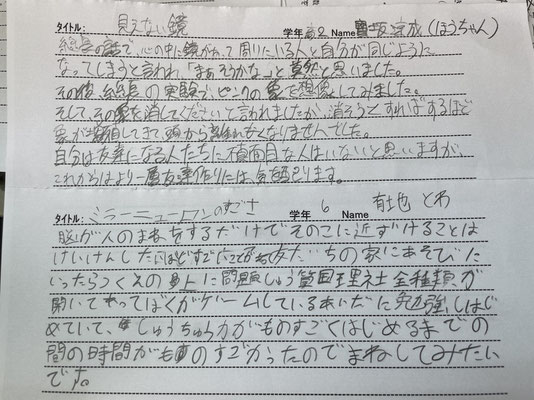 タイトル: 見えない鏡 学年 高2 Name 寶坂涼成(ほうちゃん)
総長の話で、心の中に鏡があって周りにいる人と自分が同じように
なってしまうと言われ、「まぁそうかな」と漠然と思いました。
その後、総長の実験で、ピンクの象を想像してみました。
そして、その象を消してくださいと言われましたが、消そうとすればするほど
象が増殖してきて頭から離れなくなりませんでした。
自分は友達になる人たちに真面目な人はいないと思いますが、
これからはより一層友達作りには、気を配ります。
タイトル: ミラーニューロンのすごさ 学年 6 Name 有地 とわ
脳が人のまねをするだけでそのこに近ずけることは
けいけんしたけどすごいことで友だちの家にあそびに
いったらつくえの上に問題しゅう算国理社全種類が
開いてあってぼくがゲームしているあいだに勉強しはじ
めていて、しゅうちゅう力がものすごくはじめるまでの
間の時間がものすごかったのでまねしてみたい
です。